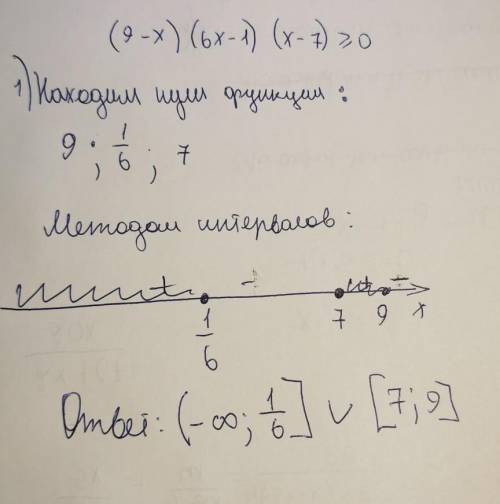 (9-x) (6x-1) (x-7) ≥ 0
1) Находим нули функции:
9; 1/6; 7
Методом интервалов:
+ - + -
1/6 7 9 x
Ответ: (-∞; 1/6] ∪ [7; 9]